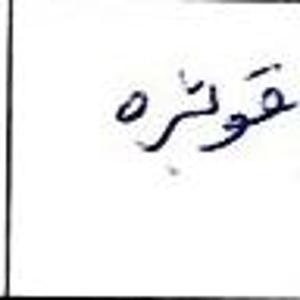 قوتره